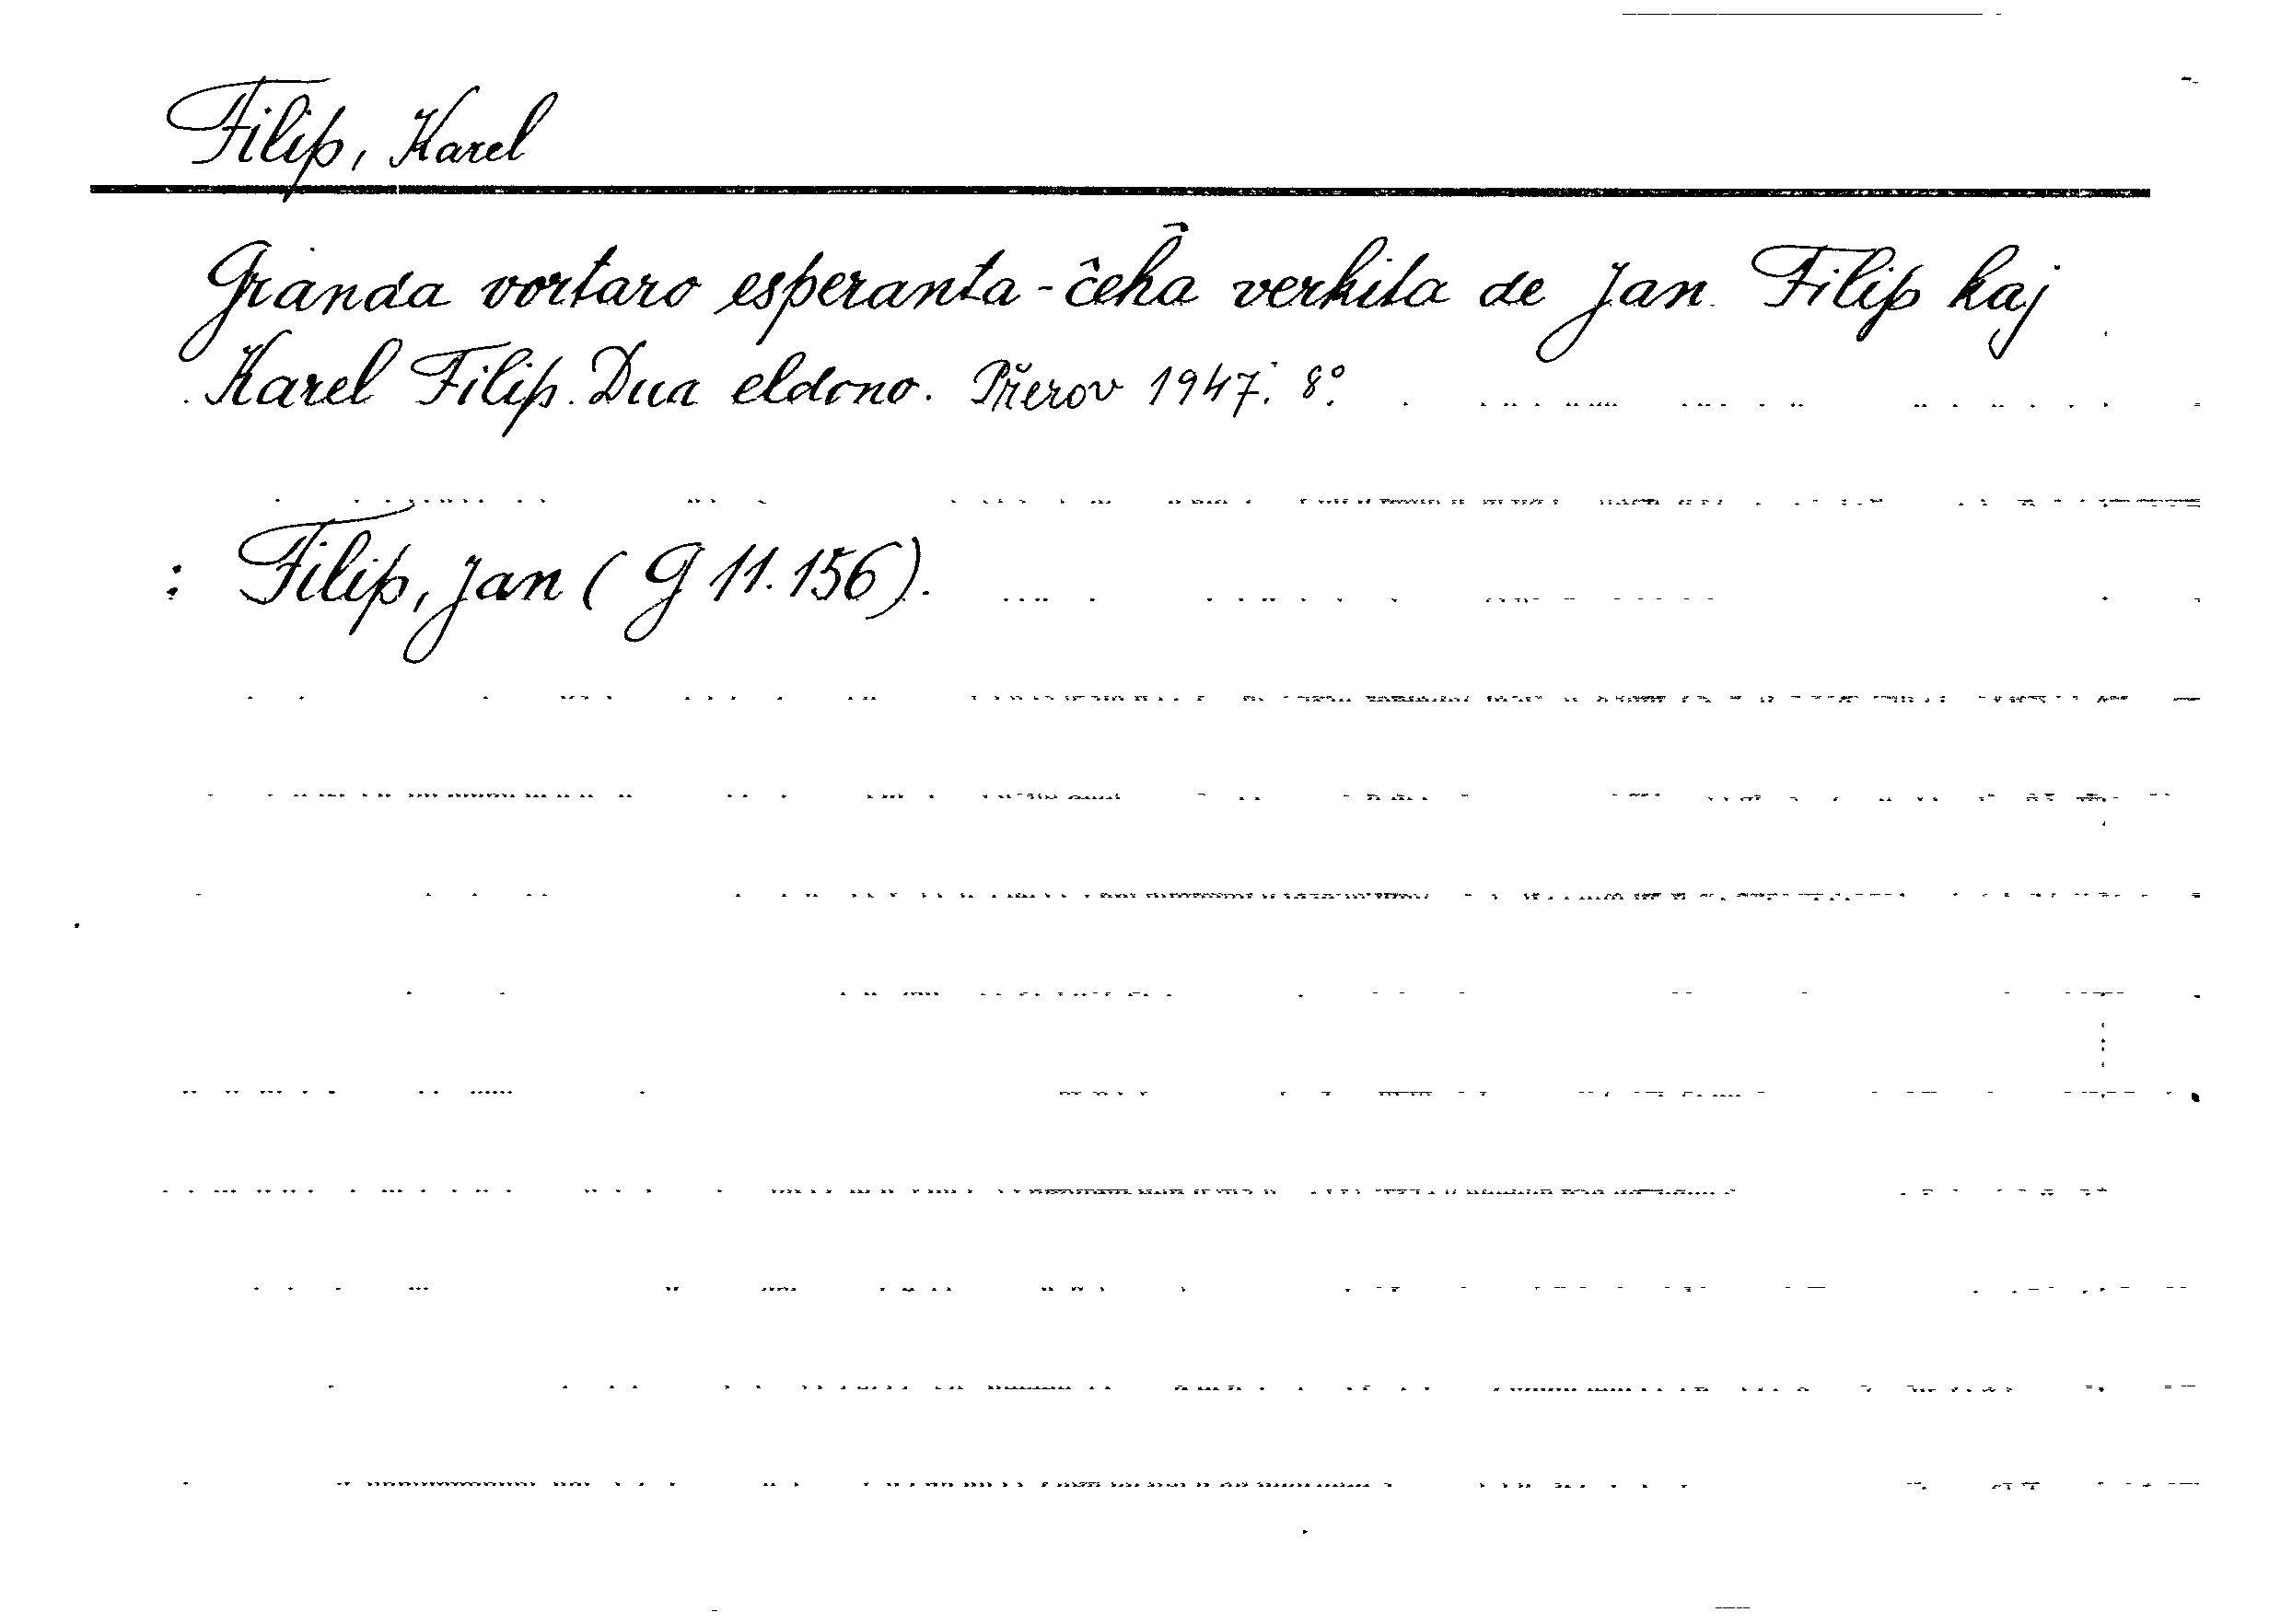 Filip, Karel
Granda vortaro esperanta-ĉeĥa verkita de Jan Filip kaj
Karel Filip. Dua eldono. Přerov 1947. 8°.
: Filip, Jan (G 11.156).